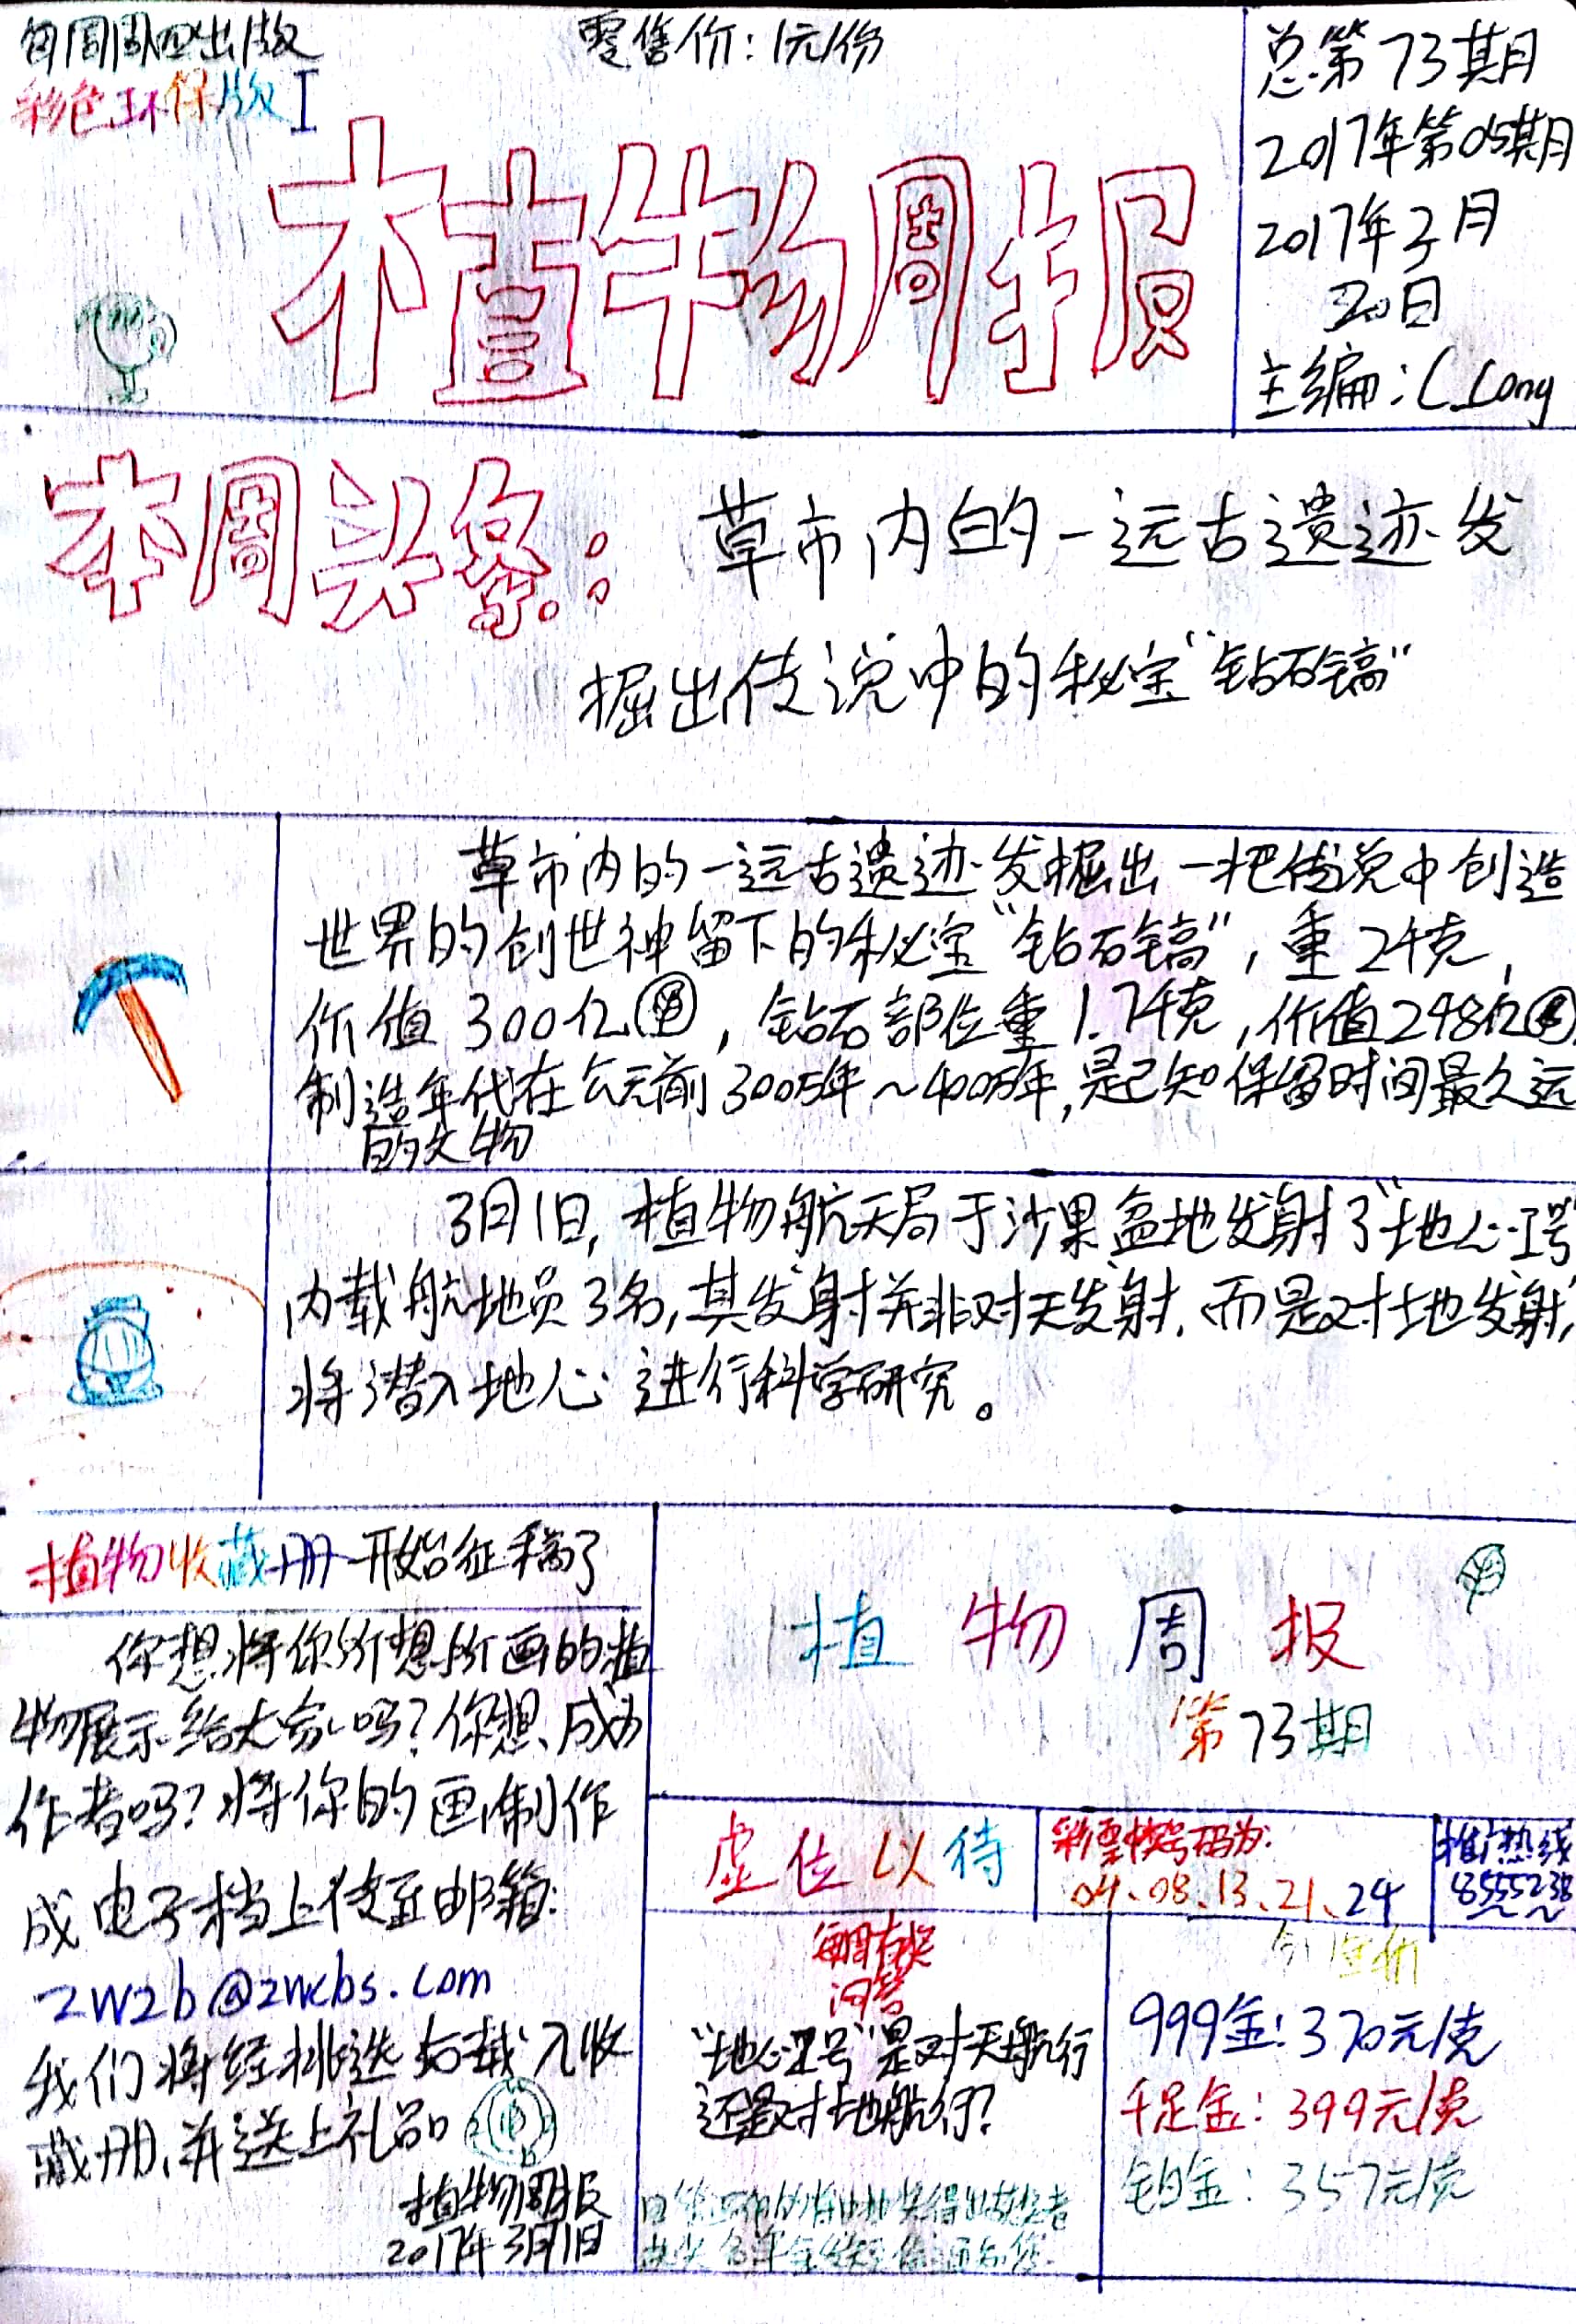 每周周四出版
零售价：1元/份
彩色环保版I
总第73期
2017年第05期
2017年3月
20日
主编：C_Long
植物周报
本周头条：
草市内的一远古遗迹发
掘出传说中的秘宝“钻石镐”
草市内的一远古遗迹发掘出一把传说中创造
世界的创世神留下的秘宝“钻石镐”，重2千克，
价值300亿，钻石部位重1.7千克，价值248亿
制造年代在公元前3005年~4005年,是已知保留时间最久远
的文物
3月1日，植物航天局于沙果盆地发射了“地心I号
内载航地员3名，其发射并非对天发射，而是对地发射，
将潜入地心进行科学研究。
植物收藏册开始征稿了
你想将你所想所画的植
物展示给大家吗？你想成为
作者吗？将你的画制作
成电子档上传至邮箱：
zwzb@zwcbs.com
我们将经挑选后载入收
藏册，并送上礼品
植物周报
2017年3月1日
植物周报
第73期
虚位以待
彩票中奖号码为：
04、08、13、21、24
推广热线
8555238
每周有奖
问答
“地心I号”是对天航行
还是对地航行？
今日金价
999金：370元/克
千足金：399元/克
铂金：357元/克